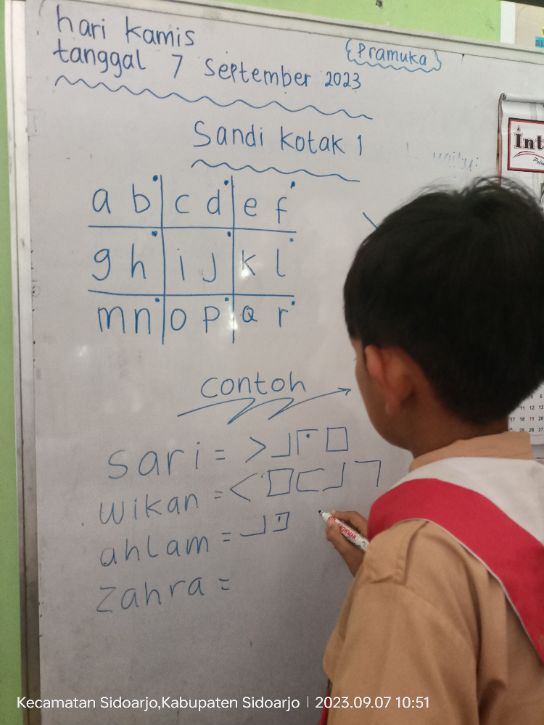 hari kamis
{Pramuka}
tanggal 7 September 2023
Sandi Kotak 1
a b c d e f
g h i J k l
m n o p Q r
contoh
sari =
wikan =
ahlam =
zahra =
Int
Kecamatan Sidoarjo,Kabupaten Sidoarjo | 2023.09.07 10:51